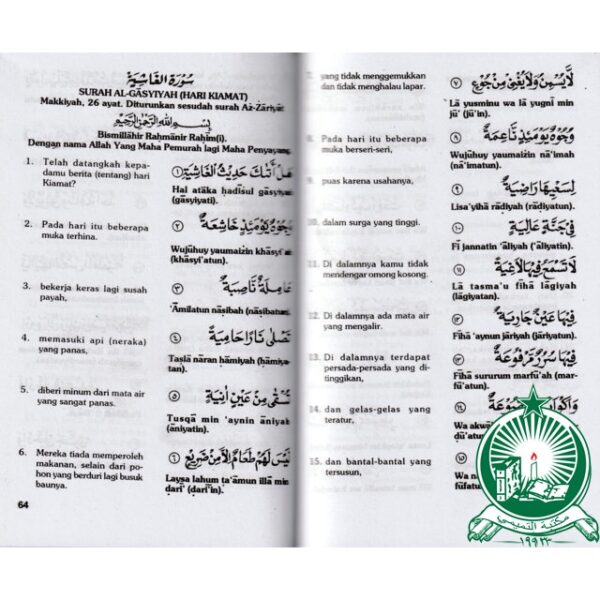 سُورَةُ الْغَاشِيَةِ
SURAH AL-GĀSYIYAH (HARI KIAMAT)
Makkiyah, 26 ayat. Diturunkan sesudah surah Aż-Żāriyāt
بِسْمِ اللهِ الرَّحْمٰنِ الرَّحِيْمِ
Bismillāhir Raḥmānir Raḥīm(i).
Dengan nama Allah Yang Maha Pemurah lagi Maha Penyayang
1. Telah datangkah kepa-
damu berita (tentang) hari
Kiamat?
هَلْ أَتٰىكَ حَدِيْثُ الْغَاشِيَةِ ①
Hal atāka ḥadīsul gāsyiyah
(gāsyiyati).
2. Pada hari itu beberapa
muka terhina.
وُجُوْهٌ يَوْمَئِذٍ خَاشِعَةٌ ②
Wujūhuy yaumaiżin khāsyi'ah
(khāsyi'atun).
3. bekerja keras lagi susah
payah,
عَامِلَةٌ نَاصِبَةٌ ③
'Āmilatun nāṣibah (nāṣibatun).
4. memasuki api (neraka)
yang panas.
تَصْلٰى نَارًا حَامِيَةً ④
Taṣlā nāran ḥāmiyah (ḥāmiya-
tan).
5. diberi minum dari mata air
yang sangat panas.
تُسْقٰى مِنْ عَيْنٍ اٰنِيَةٍ ⑤
Tusqā min 'aynin āniyah
(āniyatin).
6. Mereka tiada memperoleh
makanan, selain dari po-
hon yang berduri lagi busuk
baunya.
لَيْسَ لَهُمْ طَعَامٌ اِلَّا مِنْ ضَرِيْعٍ ⑥
Laysa lahum ṭa'āmun illā min
ḍarī' (ḍarī'in).
64
7. yang tidak menggemukkan
dan tidak menghalau lapar.
لَا يُسْمِنُ وَلَا يُغْنِيْ مِنْ جُوْعٍ ⑦
Lā yusminu wa lā yugnī min
jū' (jū'in).
8. Pada hari itu beberapa
muka berseri-seri,
وُجُوْهٌ يَوْمَئِذٍ نَاعِمَةٌ ⑧
Wujūhuy yaumaiżin nā'imah
(nā'imatun).
9. puas karena usahanya,
لِسَعْيِهَا رَاضِيَةٌ ⑨
Lisa'yihā rāḍiyah (rāḍiyatun).
10. dalam surga yang tinggi.
فِيْ جَنَّةٍ عَالِيَةٍ ⑩
Fī jannatin 'āliyah ('āliyatin).
11. Di dalamnya kamu tidak
mendengar omong kosong.
لَا تَسْمَعُ فِيْهَا لَاغِيَةً ⑪
Lā tasma'u fīhā lāgiyah
(lāgiyatan).
12. Di dalamnya ada mata air
yang mengalir.
فِيْهَا عَيْنٌ جَارِيَةٌ ⑫
Fīhā 'aynun jāriyah (jāriyatun).
13. Di dalamnya terdapat
persada-persada yang di-
tinggikan,
فِيْهَا سُرُرٌ مَرْفُوْعَةٌ ⑬
Fīhā sururun marfū'ah (mar-
fū'atun).
14. dan gelas-gelas yang
teratur,
15. dan bantal-bantal yang
tersusun,
مكتبة التميمي